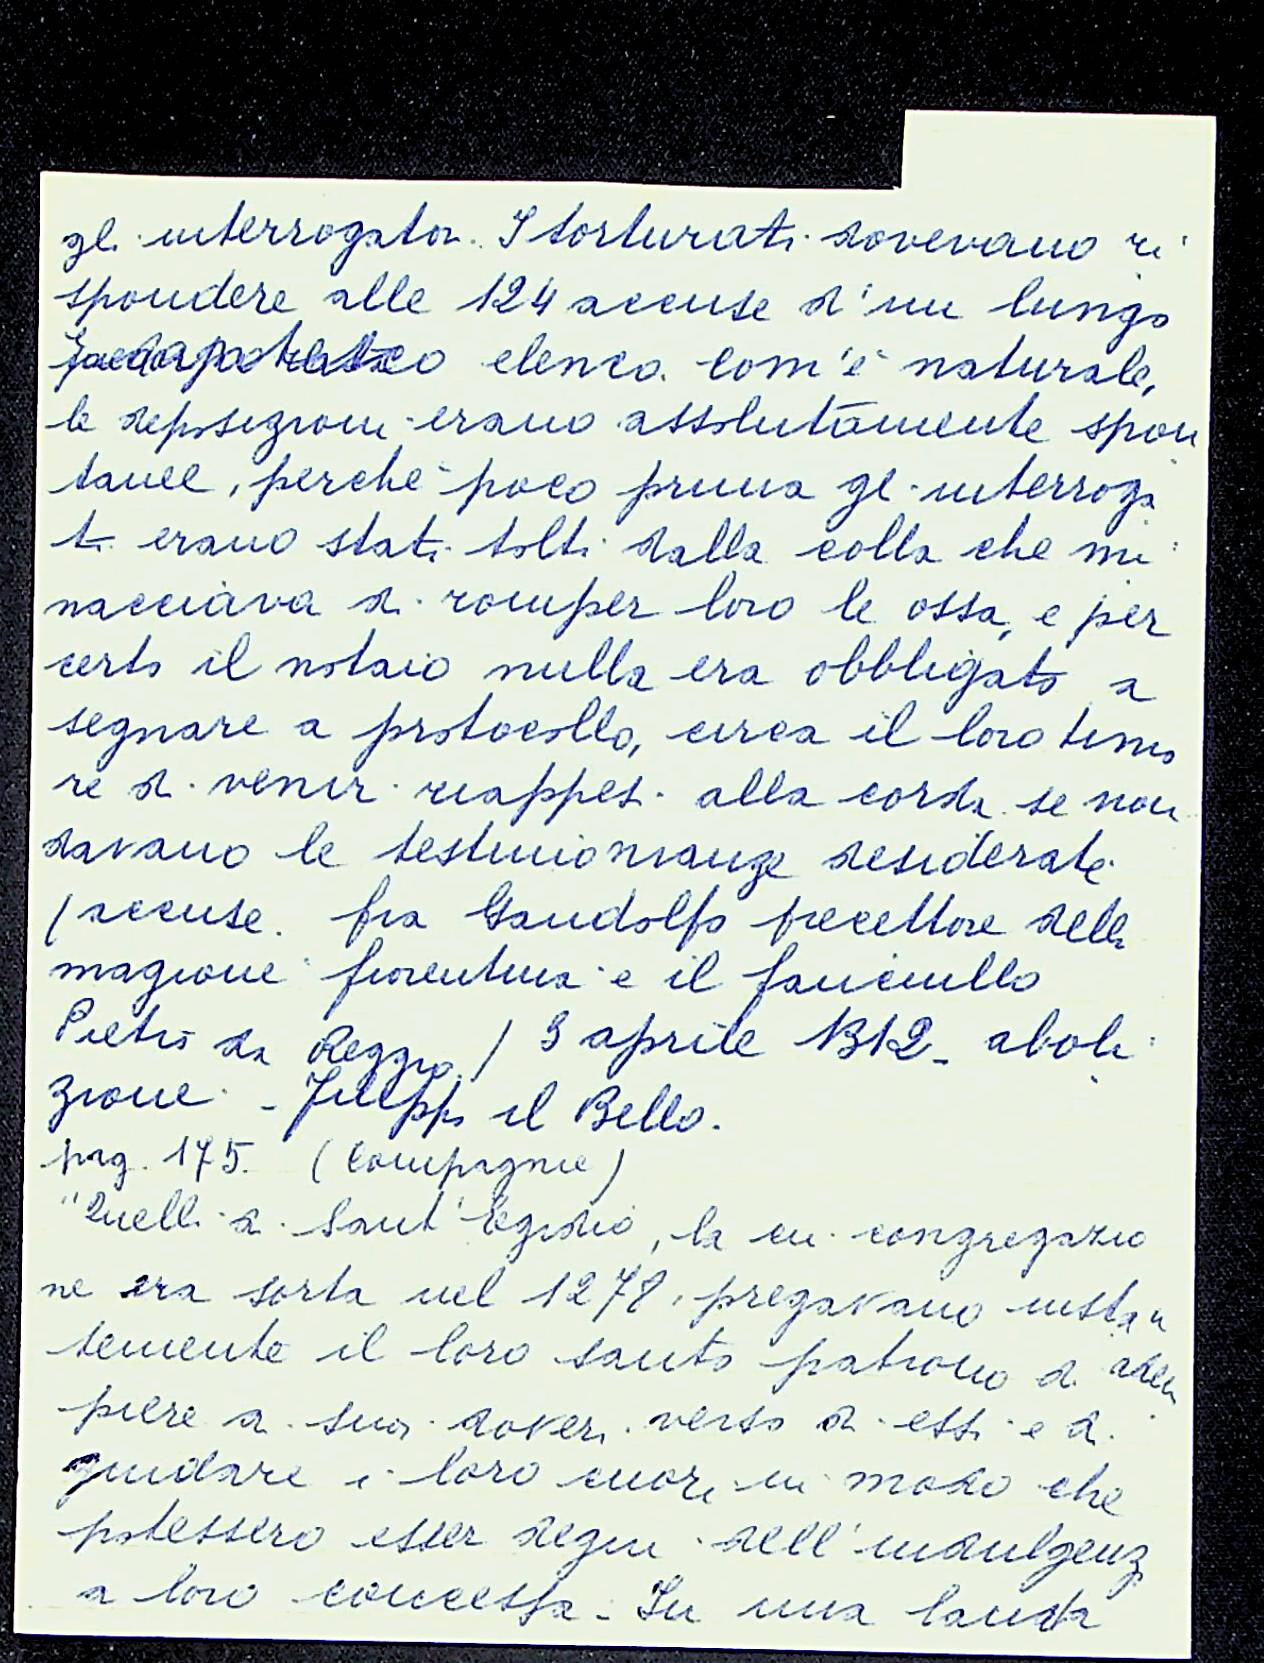 gli interrogatori. I torturati dovevano ri
spondere alle 124 accuse d'un lungo
elenco. Com'è naturale,
le deposizioni erano assolutamente spon
tanee, perchè poco prima gl'interroga
ti erano stati tolti dalla colla che mi
nacciava di romper loro le ossa, e per
certo il notaio nulla era obbligato a
segnare a protocollo, circa il loro timo
re di venir riappesi alla corda se non
davano le testimonianze desiderate
/accuse. fra Gandolfo precettore della
magione fiorentina e il fanciullo
Pietro da Reggio / 3 aprile 1312 - aboli
zione - Filippo il Bello.
pag. 175. (Compagnie)
"Quelli di Sant'Egidio, la cui congregazio
ne era sorta nel 1278, pregavano instan
temente il loro santo patrono di adem
piere ai suoi doveri verso di essi e di
guidare i loro cuori in modo che
potessero esser degni dell'indulgenz
a loro concessa. In una lauda